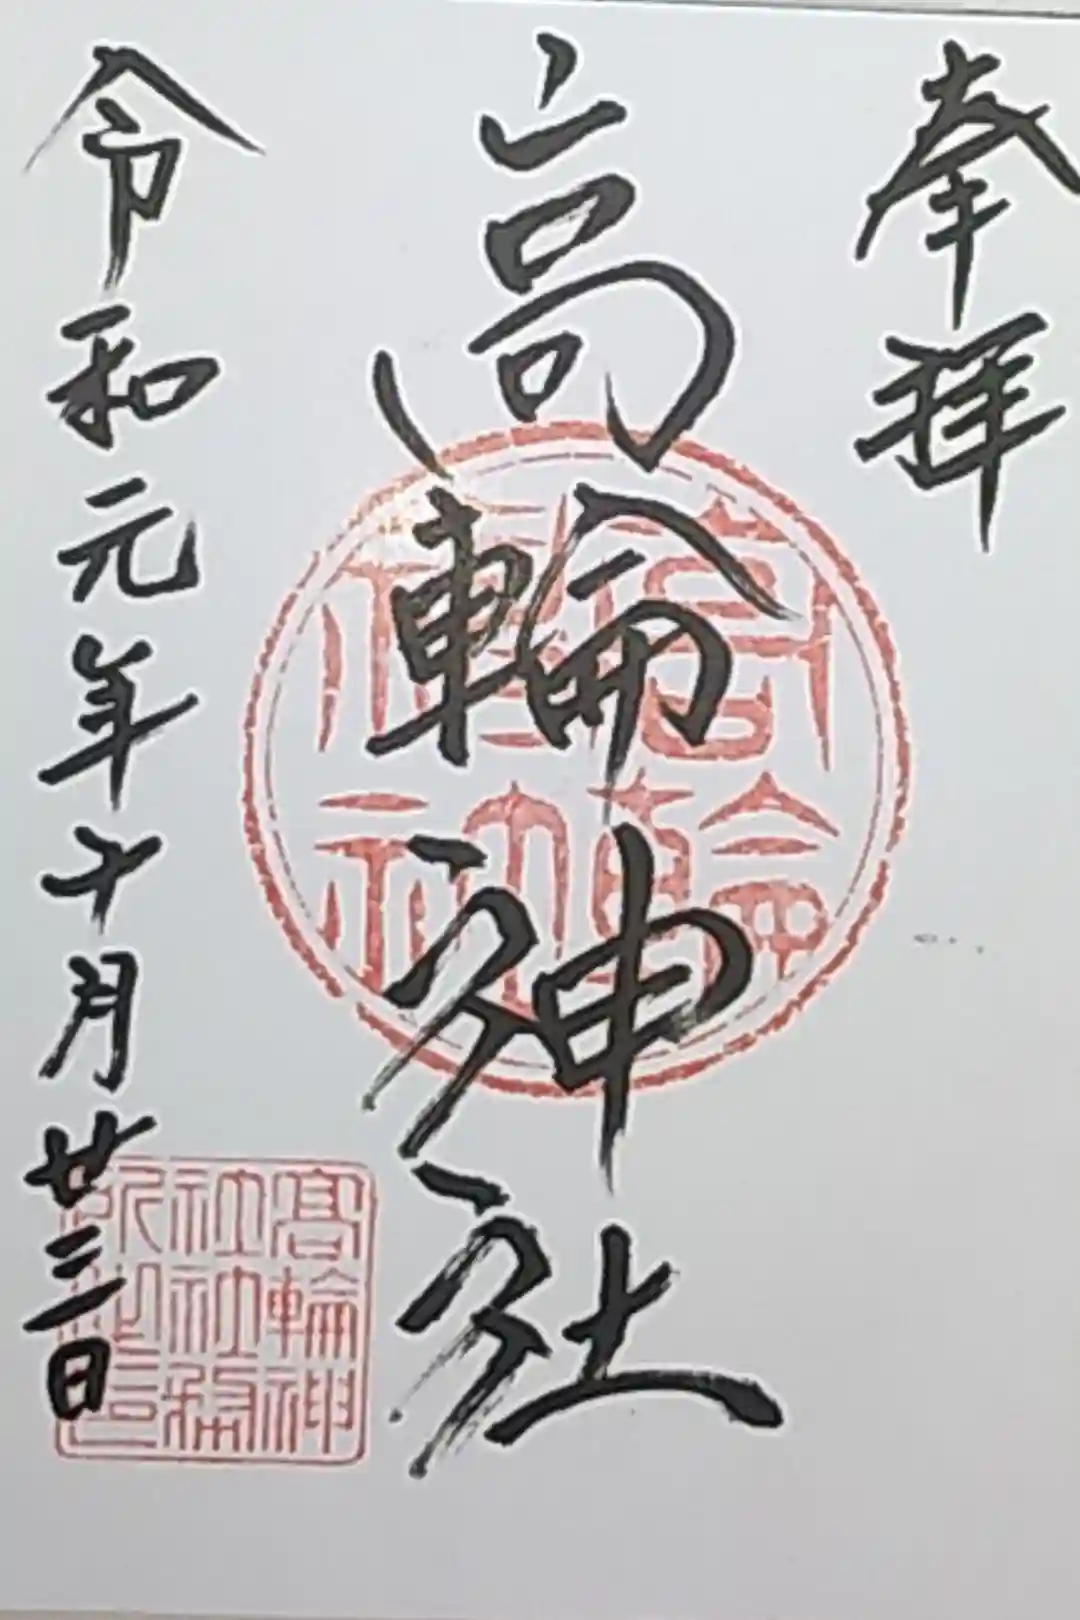 奉拝
高輪神社
令和元年十月廿三日
高輪神社
高輪神社社務所之印